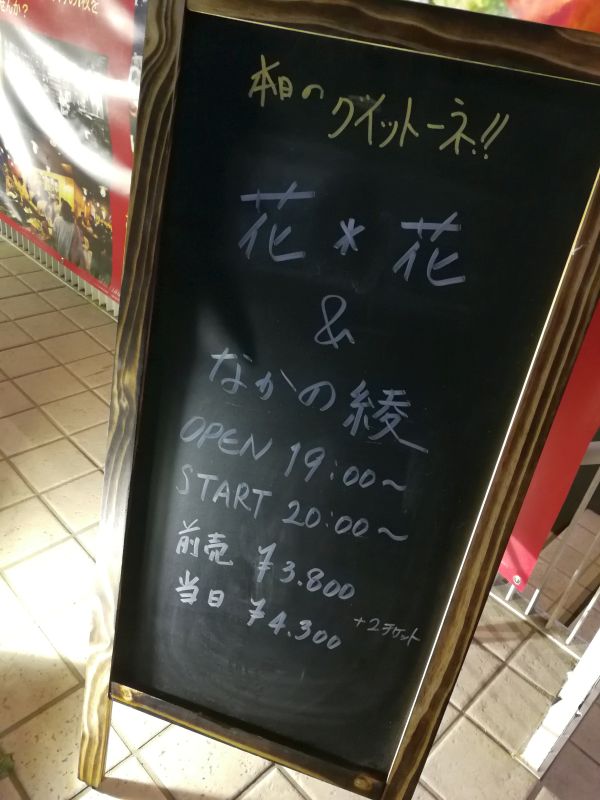 本日の グイットーネ!!
花*花
&
なかの綾
OPEN 19:00~
START 20:00~
前売 ¥3.800
当日 ¥4.300
+2チケット